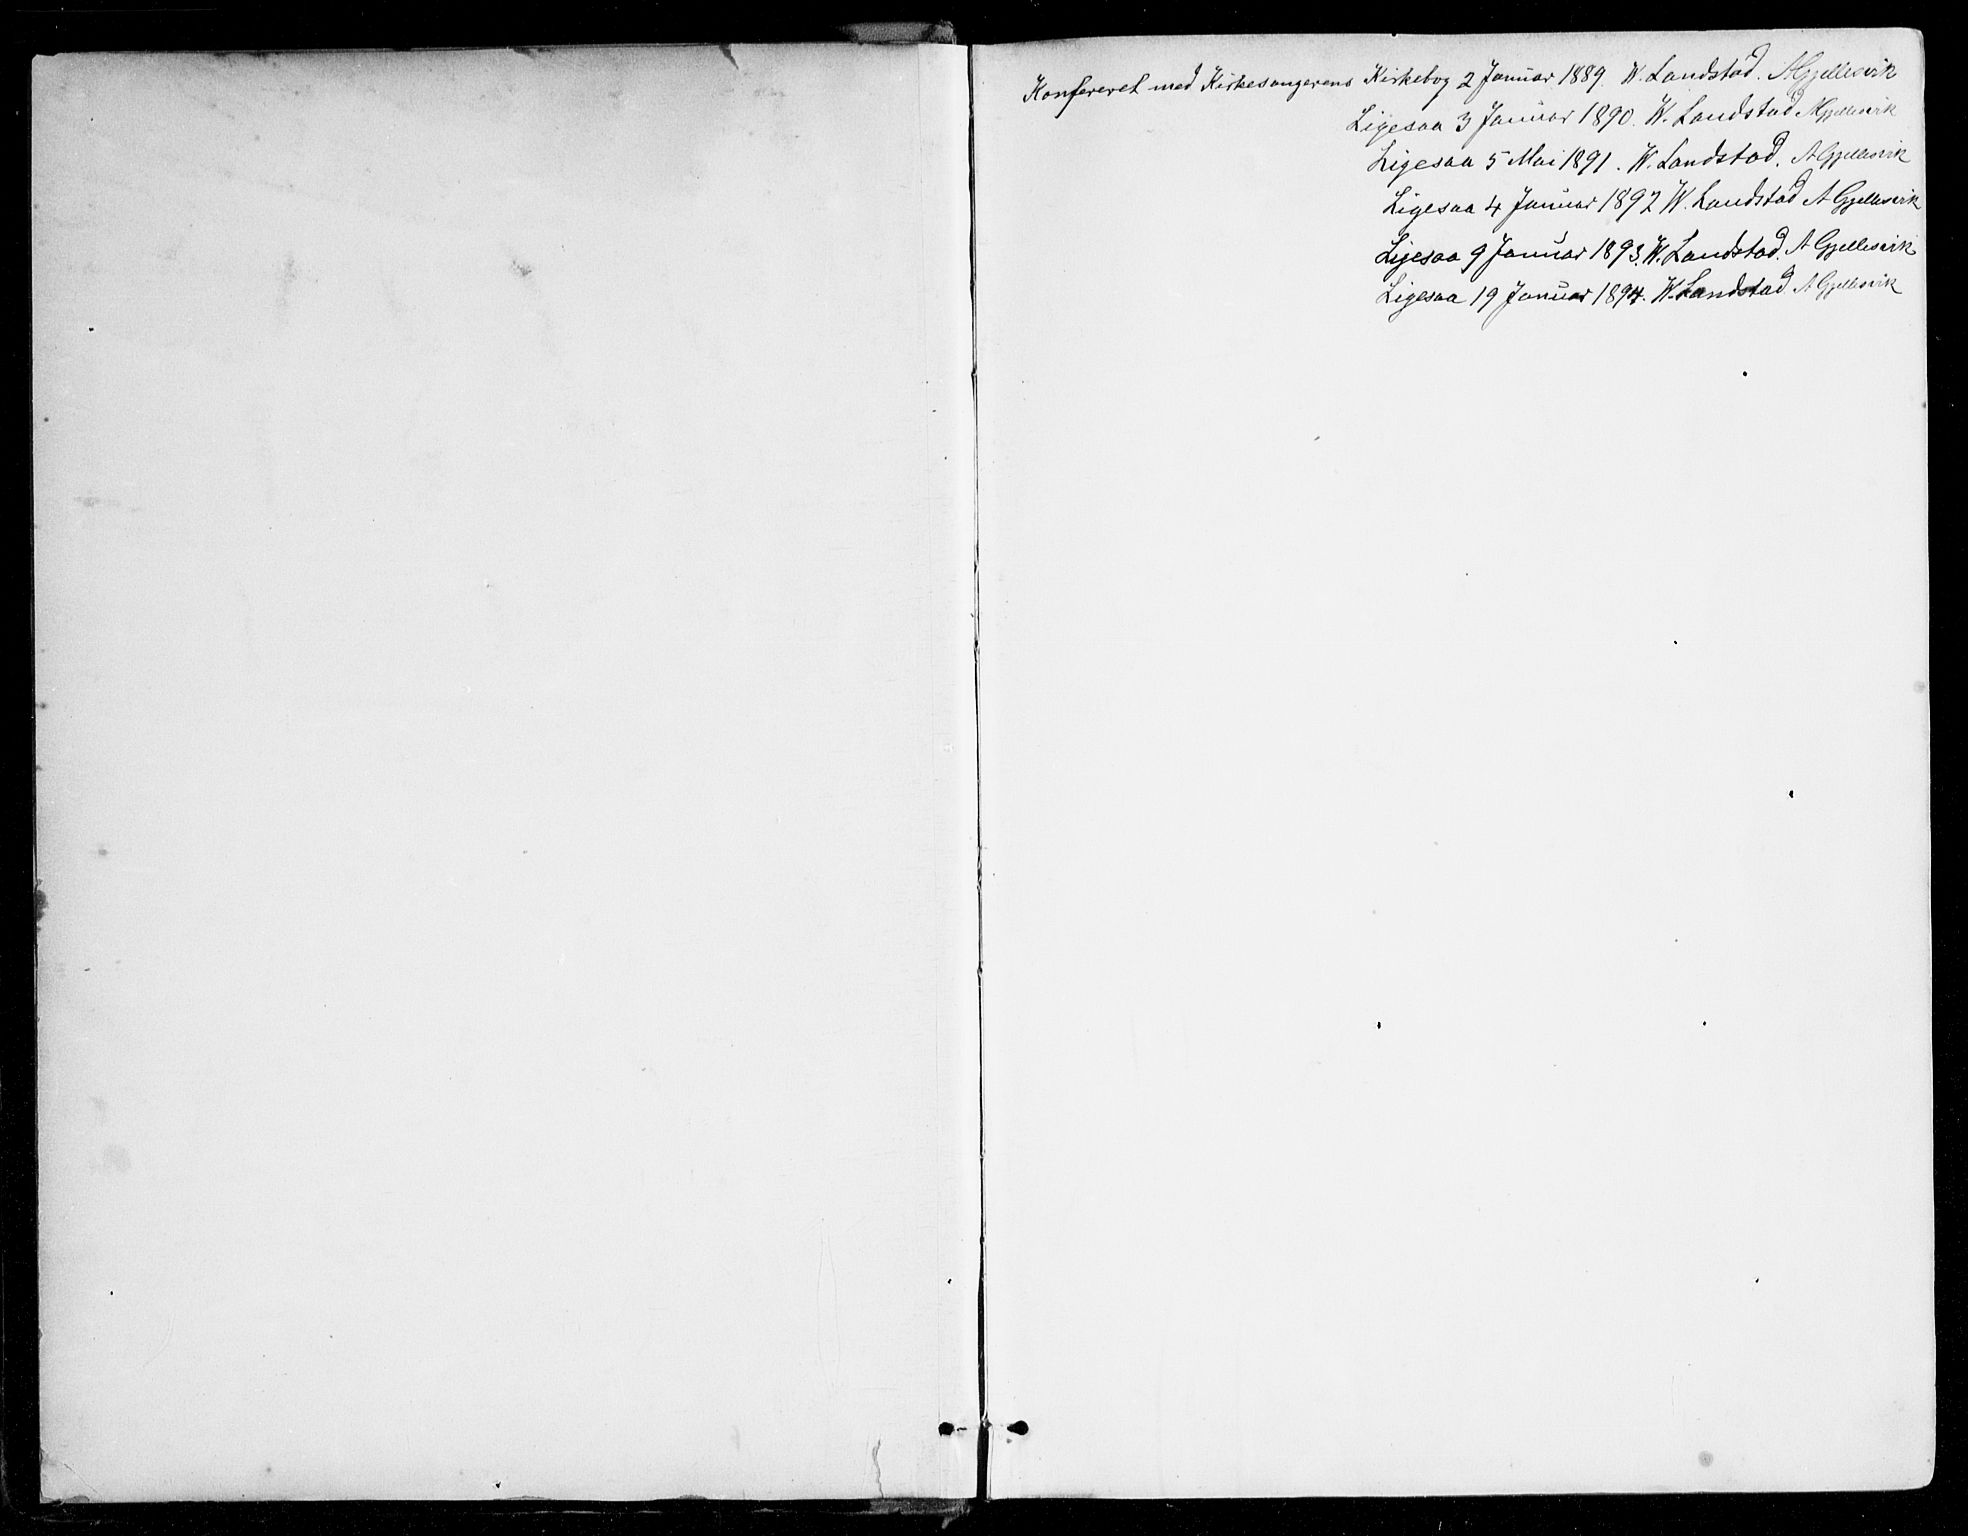 Konfereret med Kirkesangerens Kirkebog 2 Januar 1889. W. Landstad. A Gjellesvik
Ligesaa 3 Januar 1890. W. Landstad A Gjellesvik
Ligesaa 5 Mai 1891. W. Landstad. A Gjellesvik
Ligesaa 4 Januar 1892 W. Landstad A Gjellesvik
Ligesaa 9 Januar 1893. W. Landstad. A Gjellesvik
Ligesaa 19 Januar 1894. W. Landstad A Gjellesvik